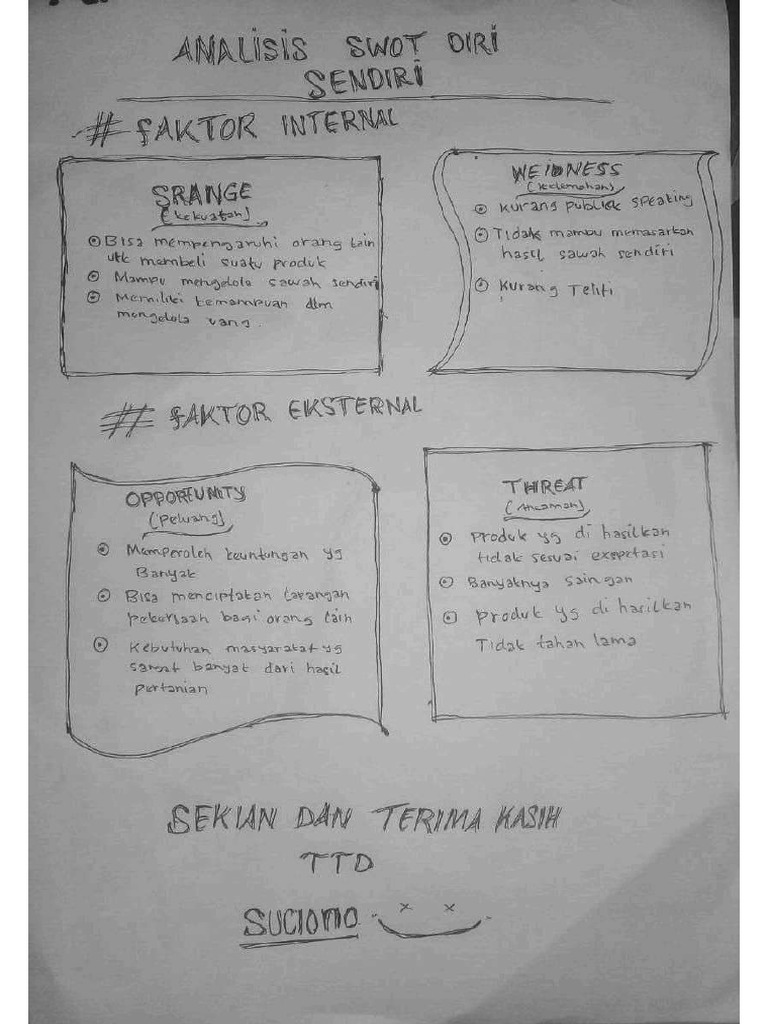 ANALISIS SWOT DIRI
SENDIRI
# FAKTOR INTERNAL
SRANGE
(kekuatan)
Bisa mempengaruhi orang lain
utk membeli suatu produk
Mampu mengelola sawah sendiri
Memiliki kemampuan dlm
mengelola uang.
WEIDNESS
(kelemahan)
Kurang publik speaking
Tidak mampu memasarkan
hasil sawah sendiri
Kurang Teliti
# FAKTOR EKSTERNAL
OPPORTUNITY
(Peluang)
Memperoleh keuntungan yg
Banyak
Bisa menciptakan larangan
pekerjaan bagi orang lain
Kebutuhan masyarakat yg
sangat banyak dari hasil
pertanian
THREAT
(Ancaman)
Produk yg di hasilkan
tidak sesuai exspetasi
Banyaknya saingan
Produk yg di hasilkan
Tidak tahan lama
SEKIAN DAN TERIMA KASIH
TTD
SUCIONO